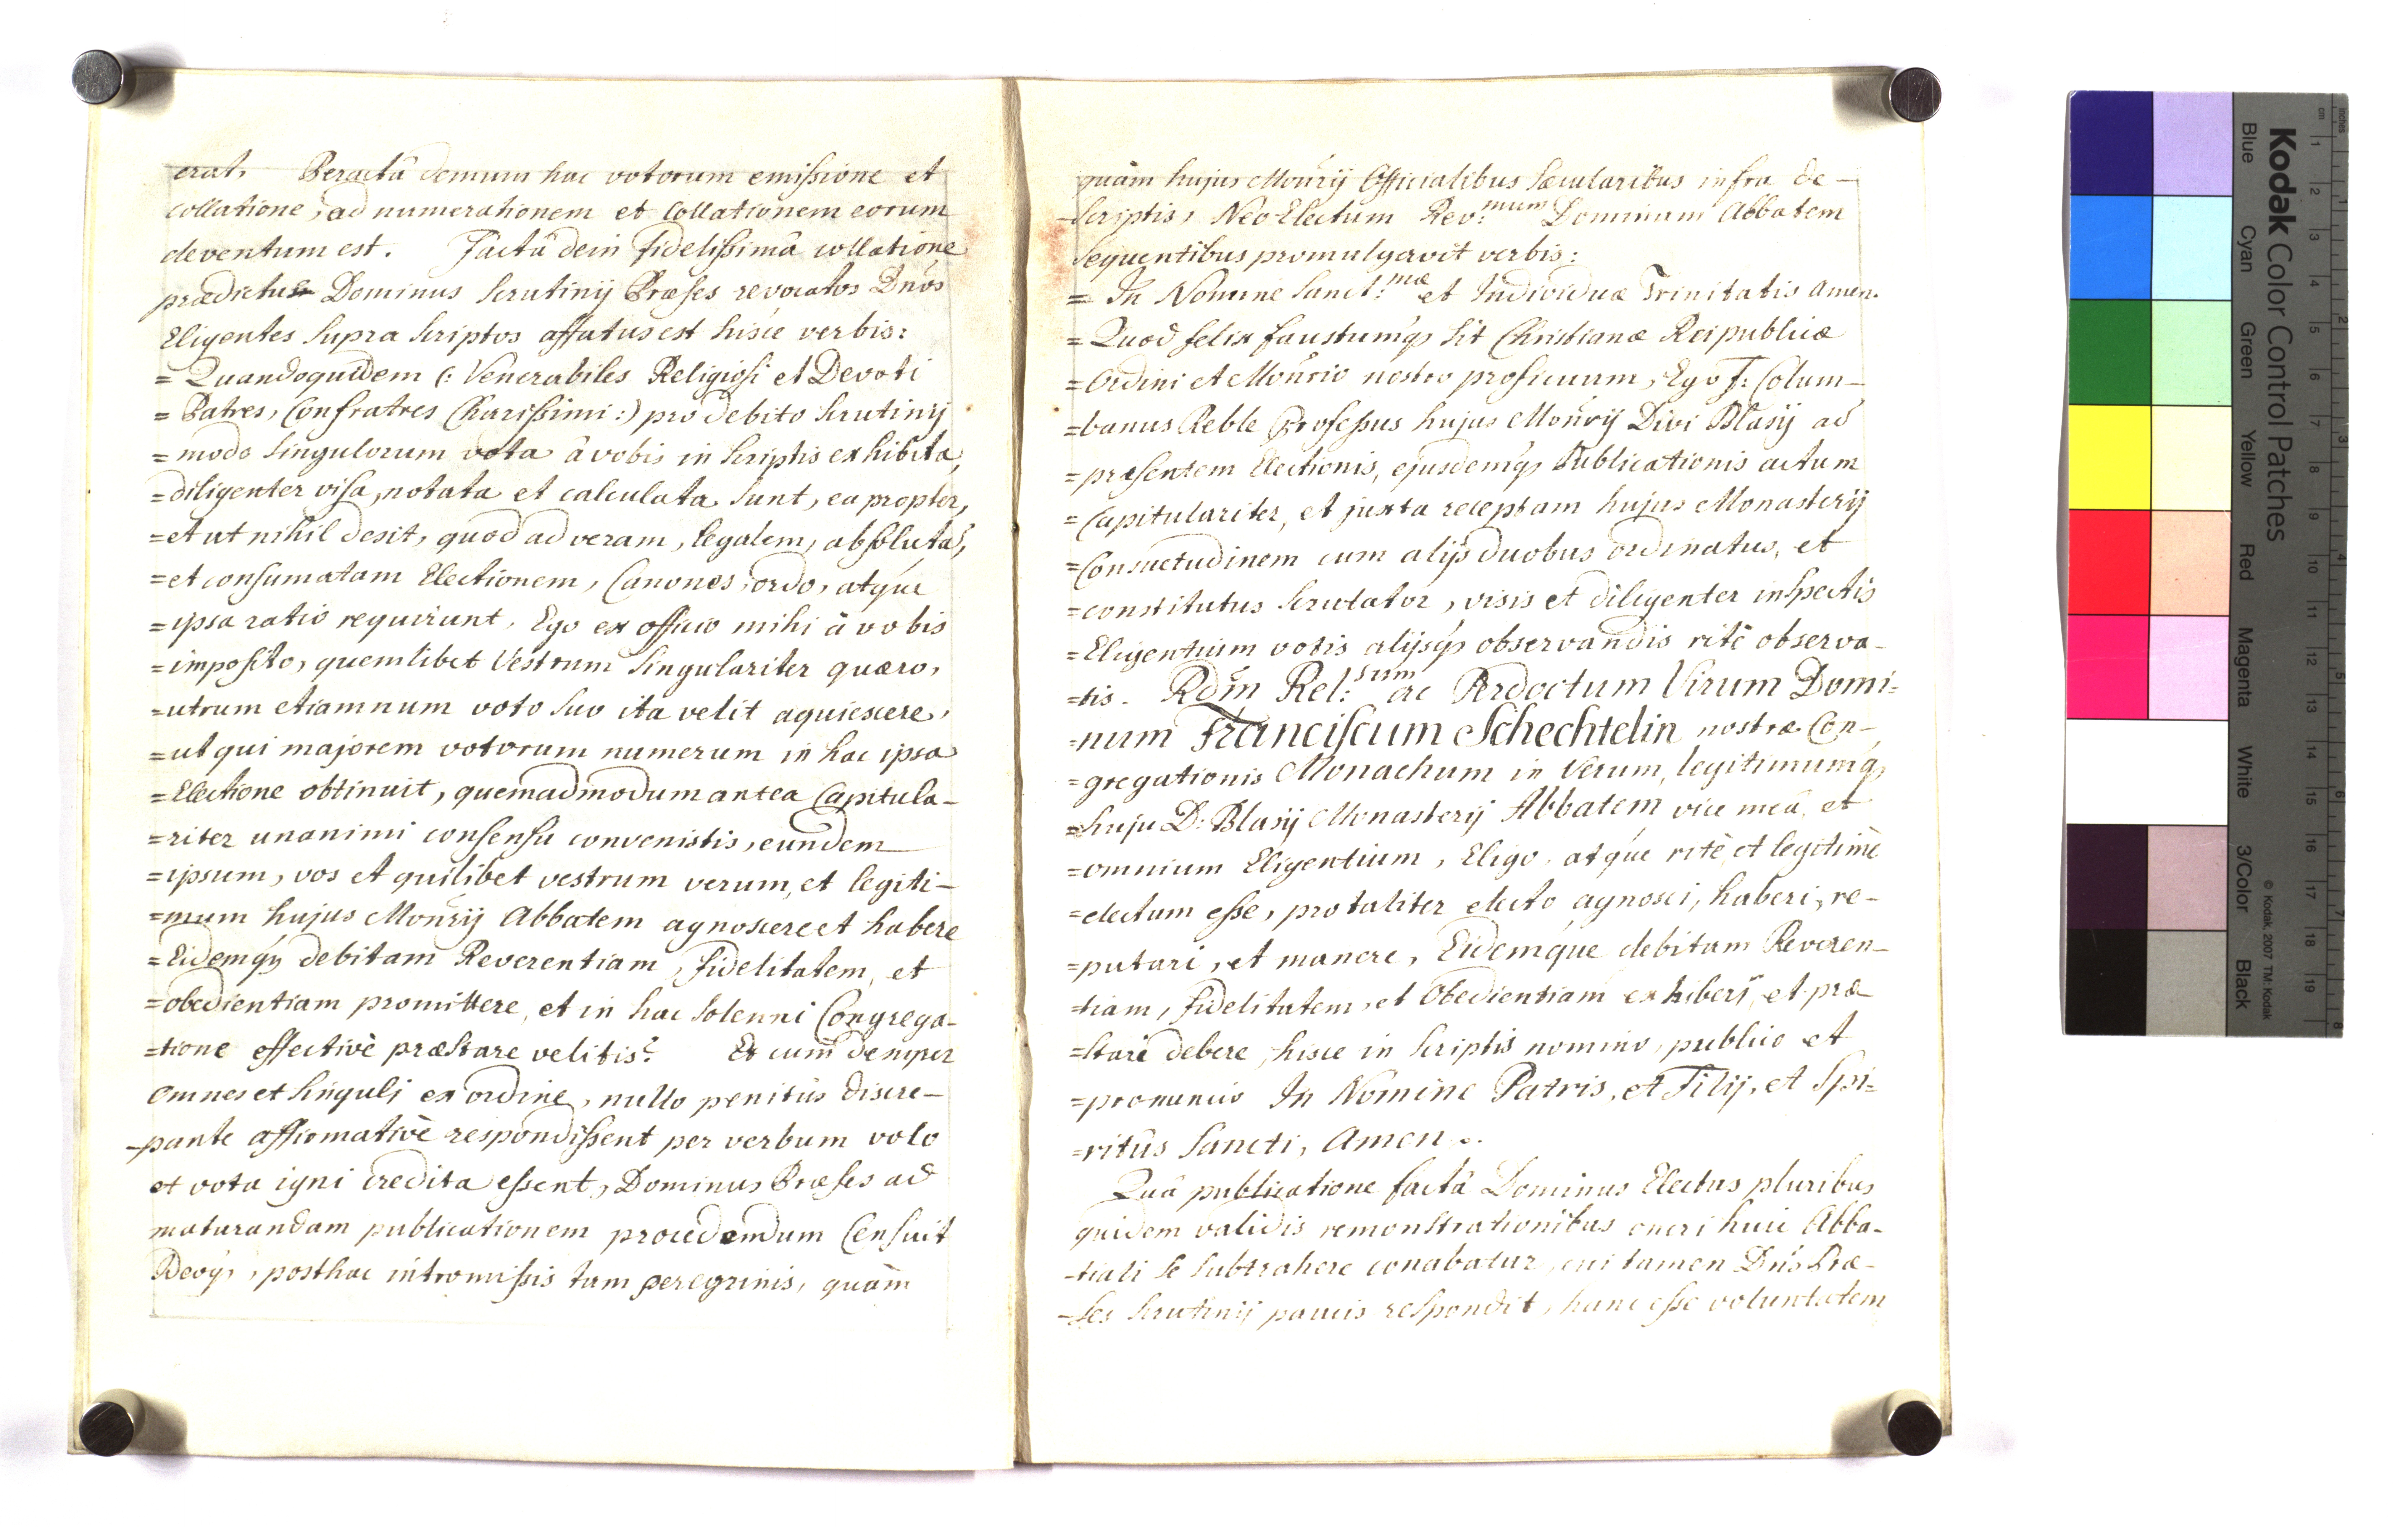 erat. Peractâ demum hac votorum emissione et
collatione, ad numerationem et Collationem eorum
deventum est. Factâ dein fidelissimâ collatione
prædictus Dominus Scrutinij Præses revocatos Dnos
Eligentes supra scriptos affatus est hisce verbis:
= Quandoquidem (: Venerabiles Religiosi et Devoti
= Patres, Confratres Charissimi :) pro debito scrutinij
= modo singulorum vota â vobis in scriptis exhibita,
= diligenter visa, notata et calculata sunt, ea propter,
= et ut nihil desit, quod ad veram, legalem, absolutā,
= et consumatam Electionem, Canones, ordo, atque
= ipsa ratio requirunt. Ego ex officio mihi â vobis
= imposito, quemlibet Vestrum singulariter quæro,
= utrum etiamnum voto suo ita velit aquiescere,
= ut qui majorem votorum numerum in hac ipsa
= Electione obtinuit, quemadmodum antea Capitula-
= riter unanimi consensu convenistis, eundem
= ipsum, vos et quilibet vestrum verum, et legiti-
= mum hujus Monrij Abbatem agnoscere et habere
= Eidemq; debitam Reverentiam, fidelitatem, et
= obedientiam promittere, et in hac solenni Congrega-
= tione effectivè præstare velitis? Et cum semper
omnes et singuli ex ordine, nullo penitùs discre-
- pante affirmativè respondissent per verbum volo
et vota igni credita essent, Dominus Præses ad
maturandam publicationem procedendum Censuit
, posthac intromissis tam peregrinis, quàm
quàm hujus Monrij Officialibus Sæcularibus infra de-
- scriptis, Neo Electum Rev:mum Dominum Abbatem
sequentibus promulgavit verbis:
= In Nomine Sanct:mæ et Individuæ Trinitatis Amen.
= Quod felix faustumq; sit Christianæ Reipublicæ
= Ordini et Monrio nostro proficuum, Ego F: Colum-
= banus Reble Professus hujus Monrij Divi Blasij ad
= præsentem Electionis, ejusdemq; Publicationis actum
= Capitulariter, et juxta receptam hujus Monasterij
= Consuetudinem cum alijs duobus ordinatus, et
= constitutus scrutator, visis et diligenter inspectis
= Eligentium votis alijsq; observandis ritè observa-
= tis. Rdm Rel:sum ac Prdoctum Virum Domi=
= num Franciscum Schechtelin nostræ Con-
= gregationis Monachum in Verum, legitimumq;
= huju D: Blasij Monasterij Abbatem vice meâ, et
= omnium Eligentium, Eligo, atque ritè et legitimè
= electum esse, pro taliter electo agnosci, haberi, re-
= putari, et manere, Eidemque debitam Reveren-
= tiam, fidelitatem, et Obedientiam exhiberi, et præ-
= stari debere, hisce in scriptis nomino, publico et
= pronuncio In Nomine Patris, et Filij, et Spi=
= ritûs Sancti, Amen.
Quâ publicatione factâ Dominus Electus pluribus
quidem validis remonstrationibus oneri huic Abba-
- tiali se subtrahere conabatur, cui tamen Dns Præ-
- ses scrutinij paucis respondit, hanc esse voluntatem
Kodak Color Control Patches
Blue Cyan Green Yellow Red Magenta White 3/Color Black
© Kodak, 2007 TM: Kodak
inches 1 2 3 4 5 6 7 8
cm 1 2 3 4 5 6 7 8 9 10 11 12 13 14 15 16 17 18 19